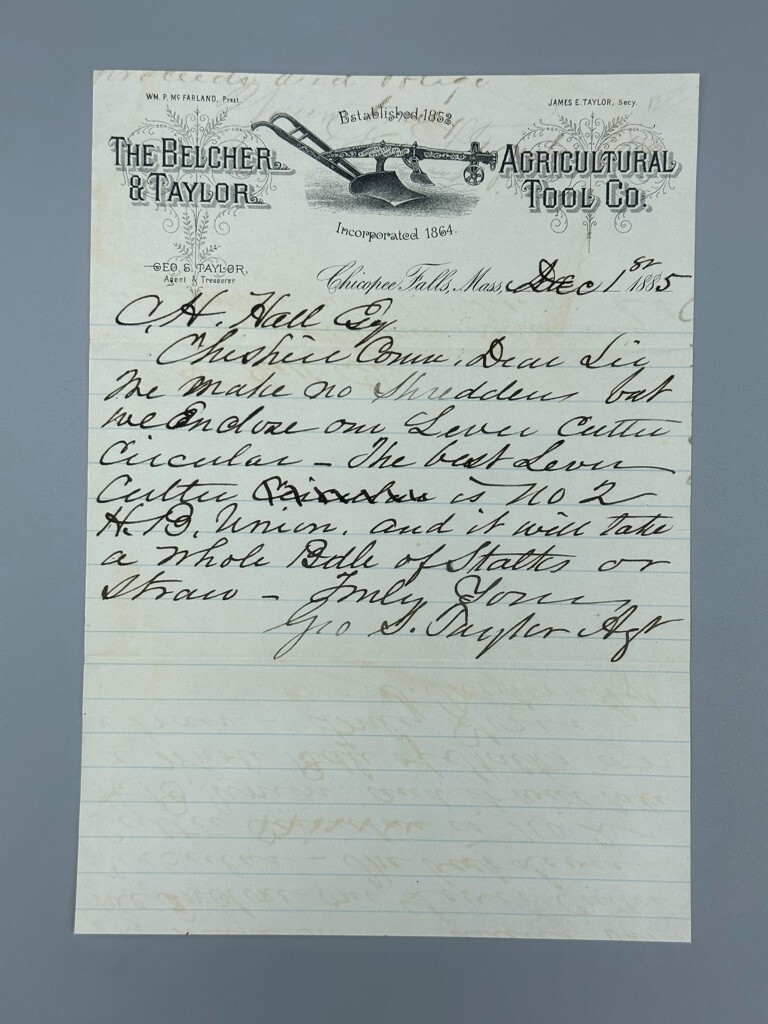 proceeds and oblige
WM. P. McFARLAND, Prest.
JAMES E. TAYLOR, Secy.
Established 1852
THE BELCHER & TAYLOR AGRICULTURAL TOOL CO.
Incorporated 1864.
GEO. S. TAYLOR,
Agent & Treasurer
Chicopee Falls, Mass, Dec 1st 1885
C. H. Hall Esq
Cheshire Conn. Dear Sir
We make no Shredders but
we Enclose our Lever Cutter
Circular - The best Lever
Cutter is No 2
H. B. Union. and it will take
a whole Bdle of Stalks or
Straw - Truly Yours
Geo S. Taylor Agt